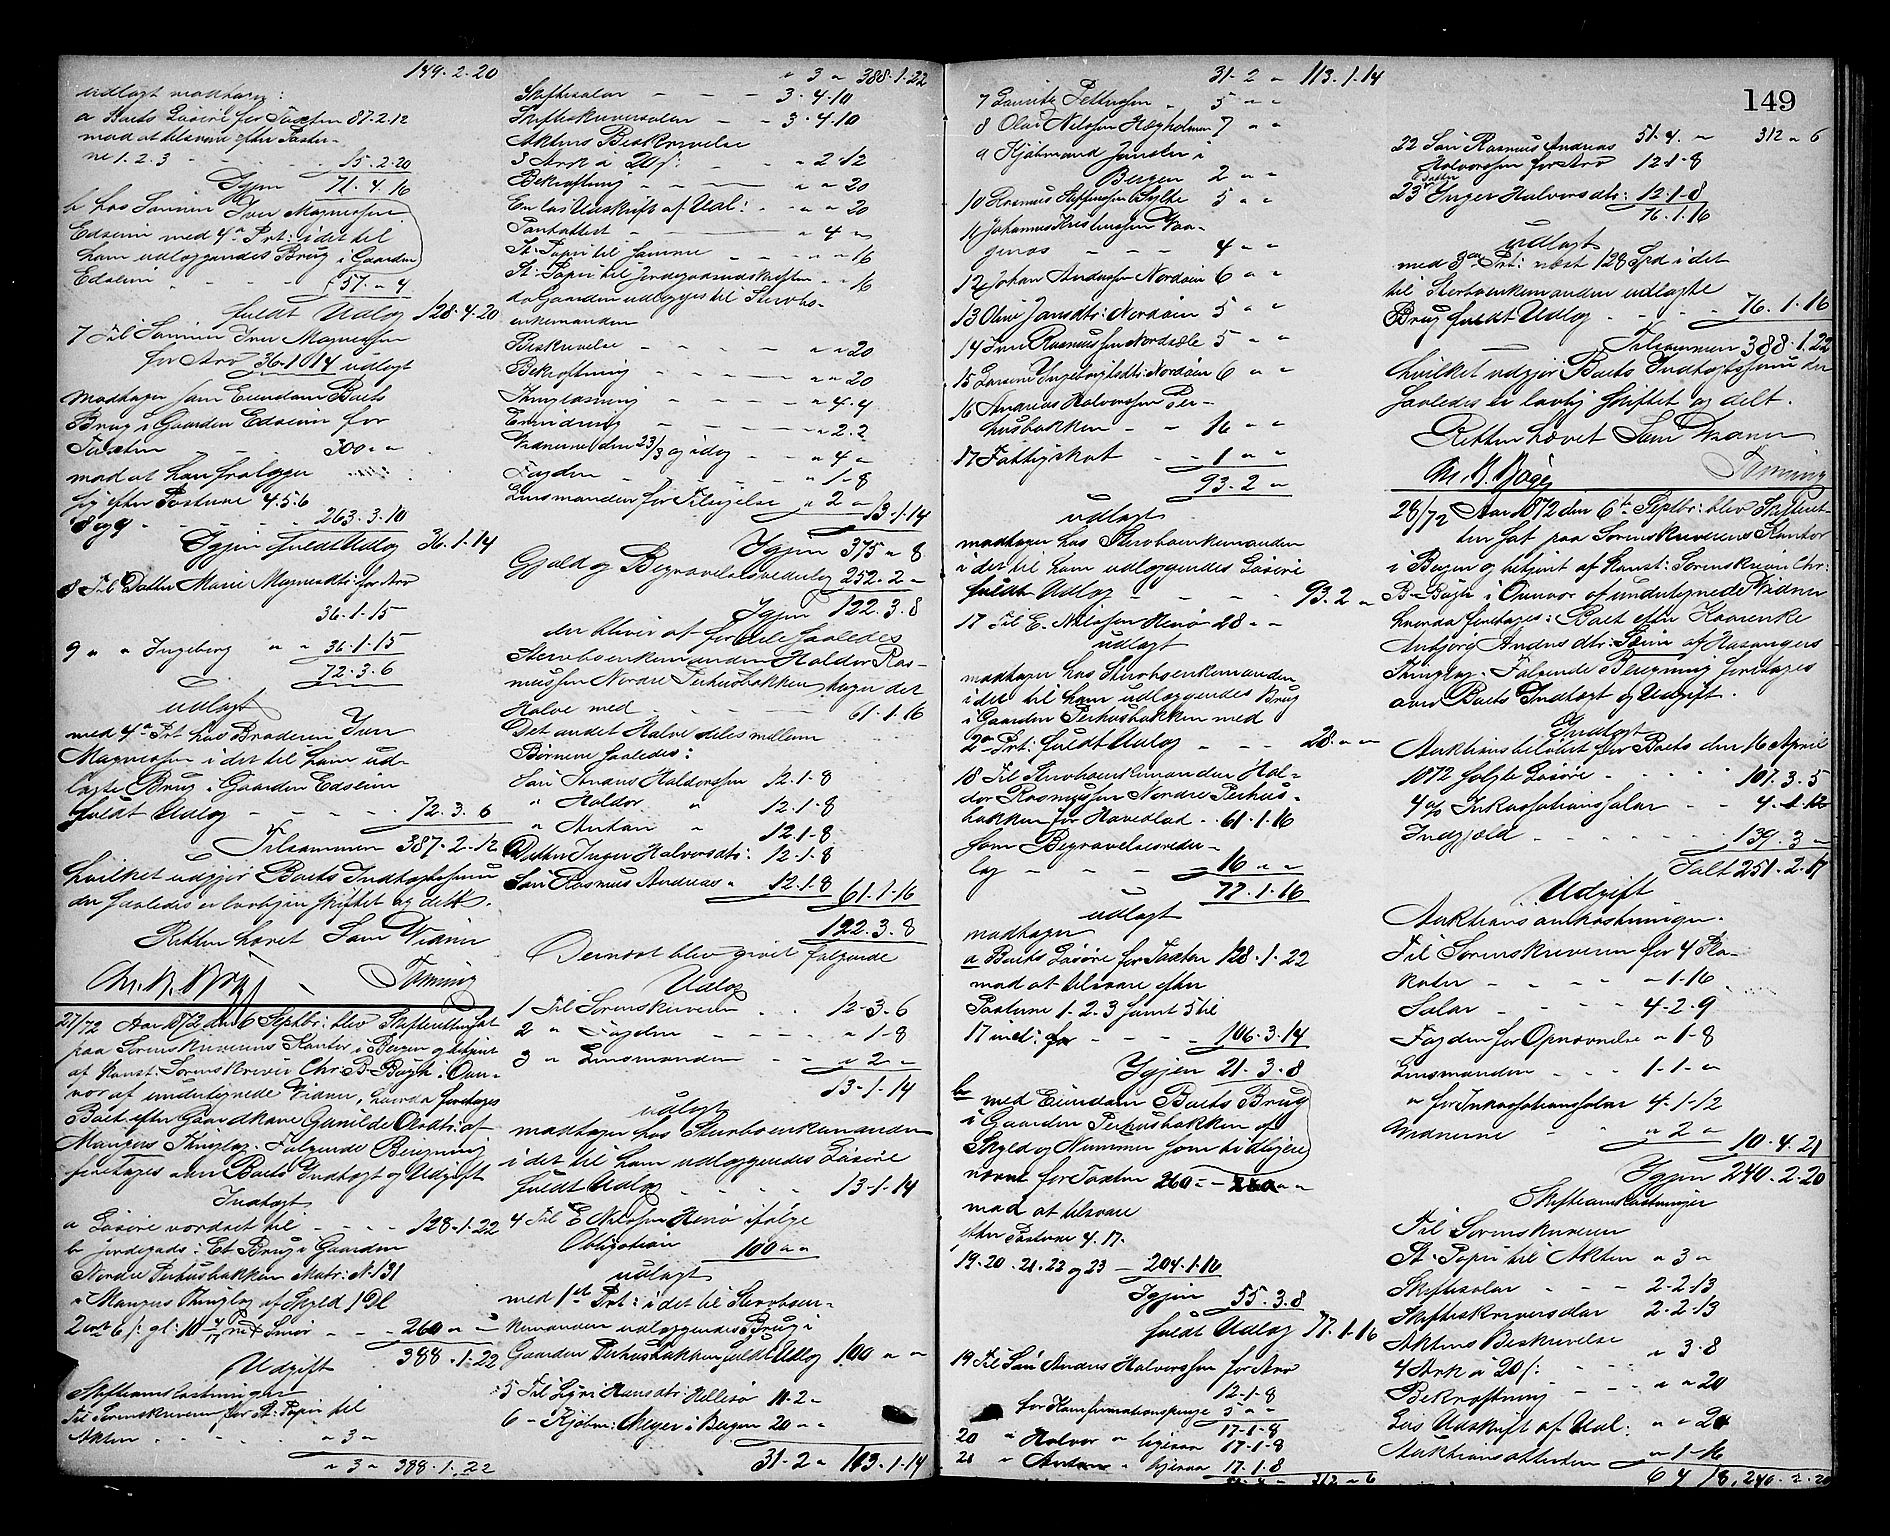 149-2-20
udlagt modtager:
a Boets Løsøre for Taxten 87-2-12
mod at tilsvare efter Poster-
ne 1.2.3 - - - 15-2-20
Igjen 71-4-16
b hos Sønnen Iver Magnessen
Edseim med 4de Prt: i det til
ham udlæggendes Brug i Gaarden
Edseim - - - 57-"-4
fuldt Udlog 128-4-20
7 Til Sønnen Iver Magnessen
for Arv 36-1014 udlagt
modtager som Eiendom Boets
Brug i Gaarden Edseim for
Taxten - - 300-"-"
mod at han fralægger
sig efter Posterne 4.5.6
8 og 9 - - - 263-3-10
Igjen fuldt Udlog 36-1-14
8 Til Datter Marie Magnesdtr: for Arv
36-1-15
9 " " Ingeborg " " 36-1-15
72-3-6
udlagt
med 4de Prt hos Broderen Iver
Magnessen i det til ham ud-
lagte Brug i Gaarden Edseim
fuldt Udlog - - - 72-3-6
Tilsammen 387-2-12
hvilket udgjør Boets Indtægtssum
der saaledes er lovligen skiftet og delt.
Retten hævet Som Vidner
Chr. B. Bøgh - Fleming
27/72 Aar 1872 den 6 Septbr: blev Skifteretten sat
paa Sorenskriverens Kontor i Bergen og betjent
af Konst: Sorenskriver Chr: B. Bøgh i Over-
vær af undertegnede Vidner, hvorda foretoges
Boet efter Gaardkone Gunilde Olsdtr: af
Mangers Thinglag. Følgende Beregning
foretoges over Boets Indtægt og Udgift
Indtægt
a Løsøre vordret til - - - 128-1-22
b Jordegods: Et Brug i Gaarden
Nordre Perhusbakken Matr: N. 131
i Mangers Thinglag af Skyld 1 Dl
2 ort 6 s: gl: 10 4/17 mk Smør - - 260-"-"
388-1-22
Udgift
Skifteomkostninger
Til Sorenskriveren for St: Papir til
Akten - - - " 3 "
" 3 " 388-1-22
" 3 " 388-1-22
Skiftesalar - - - 3-4-10
Skifteskriversalar - - 3-4-10
Aktens Beskrivelse
3 Ark à 20 s: - - "-2-12
Bekræftning - - - "-"-20
En løs Udskrift af Udl: - - "-"-20
Pantattest - - - "-4-"
St: Papir til samme - - "-"-16
St: Papir til Jordegodsudskriften - "-"-16
da Gaarden udlægges til Stervbo-
enkemanden
Beskrivelse - - - "-"-20
Bekræftning - - - "-"-20
Thinglæsning - - - "-4-4
Erindring - - - "-2-2
Vidnerne den 23/3 og idag - - "-4-"
Fogden - - - "-1-8
Lensmanden for Tilsigelse "-2-"
13-1-14
Igjen 375-"-8
Gjeld og Begravelsesvederlag 252-2-"
Igjen 122-3-8
der bliver at fordele saaledes
Stervboenkemanden Haldor Ras-
mussen Nordre Perhusbakken tager det
Halve med - - - 61-1-16
Det andet Halve deles mellem
Børnene saaledes:
Søn Anders Haldorssen 12-1-8
" Haldor " 12-1-8
" Anton " 12-1-8
Datter Inger Halvorsdtr: 12-1-8
Søn Rasmus Andreas " 12-1-8 61-1-16
122-3-8
Dernæst blev givet følgende
Udlog
1 Til Sorenskriveren - - 12-3-6
2 " Fogden - - - "-1-8
3 " Lensmanden - - "-2-"
13-1-14
udlagt
modtager hos Stervboenkemanden
i det til ham udlæggendes Løsøre
fuldt Udlog - - - 13-1-14
4 Til E Nilssen Herø ifølge
Obligation 100-"-"
udlagt
med 1ste Prt: i det til Stervboen-
kemanden udlæggendes Brug i
Gaarden Perhusbakken fuldt Udlog 100-"-"
5 Til Siri Hansdtr: Hellesø 11-2-"
6 - Kjøbm: Meyer i Bergen 20-"-"
31-2-" 113-1-14
31-2-" 113-1-14
7 Laurits Pettersen - 5-"-"
8 Olai Nilssen Hægholmen 7-"-"
9 Kjøbmand Jansen i
Bergen 2-"-"
10 Rasmus Steffensen Sylte 5-"-"
11 Johannes Kristensen Vaa-
genes - - - 4-"-"
12 Johan Anderssen Nordøen 6-"-"
13 Oline Jansdtr: Nordøen 5-"-"
14 Iver Rasmussen Nordsæle 5-"-"
15 Larsine Ingeborgsdtr: Nordøen 6-"-"
16 Andreas Halvorssen Per-
husbakken - - 16-"-"
17 Fattigskat - - 1-"-"
93-2-"
udlagt
modtager hos Stervboenkemanden
i det til ham udlæggendes Løsøre
fuldt Udlog - - - 93-2-"
17 Til E. Nilssen Herø 28-"-"
udlagt
modtager hos Stervboenkemanden
i det til ham udlæggendes Brug
i Gaarden Perhusbakken med
2den Prt: fuldt Udlog - - - 28-"-"
18 Til Stervboenkemanden Hal-
dor Rasmussen Nordre Perhus-
bakken for Hovedlod - 61-1-16
som Begravelsesveder-
lag - - - 16-"-"
77-1-16
udlagt
modtager
a Boets Løsøre for Taxten 128-1-22
mod at tilsvare efter
Posterne 1-2-3 samt 5 til
17 incl: for - - - 106-3-14
Igjen 21-3-8
b med Eiendom Boets Brug
i Gaarden Perhusbakken af
Skyld og Nummer som tidligere
nævnt for Taxten 260-"-"
mod at tilsvare
efter Posterne 4.17.
19.20.21.22 og 23 - 204-1-16
Igjen 55-3-8
fuldt Udlog 77-1-16
19 Til Søn Anders Halvorssen for Arv
12-1-8
for Konfirmationspenge 5-"-"
17-1-8
20 " Halvor " ligesaa 17-1-8
21 " Anton " ligesaa 17-1-8
51-4-" 312-"-6
149
51-4-" 312-"-6
22 Søn Rasmus Andreas
Halvorssen for Arv 12-1-8
23 Datter Inger Halvorsdtr: 12-1-8
76-1-16
udlagt
med 3die Prt: næst 128 Spd i det
til Stervboenkemanden udlagte
Brug fuldt Udlog - - - 76-1-16
Tilsammen 388-1-22
hvilket udgjør Boets Indtægtssum der
saaledes er lovlig skiftet og delt.
Retten hævet Som Vidner
Chr. B. Bøgh Fleming
28/72 Aar 1872 den 6te Septbr: blev Skifteret-
ten sat paa Sorenskriverens Kontor
i Bergen og betjent af Konst: Sorenskriver Chr:
B. Bøgh i Overvær af undertegnede Vidner
hvorda foretoges: Boet efter Kaarenke
Anbjørg Andersdtr: Seim af Hosangers
Thinglag. Følgende Beregning foretoges
over Boets Indtægt og Udgift.
Indtægt
Auktionsbeløbet for Boets den 16 April
1872 solgte Løsøre - - - 107-3-5
4 o/o Inkassationssalar - - 4-1-12
Indgjæld - - - 139-3-"
Talt 251-2-17
Udgift
Auktionsomkostninger.
Til Sorenskriveren for 4 Pla-
kater - - - "-1-16
Salar - - - 4-2-9
Fogden for Opnævnelse "-1-8
Lensmanden - - - 1-1-"
" for Inkassationssalar 4-1-12
Vidnerne - - "-2-"
10-4-21
Igjen 240-2-20
Skifteomkostninger
Til Sorenskriveren
St: Papir til Akten "-3-"
Skiftesalar - - 2-2-13
Skifteskriversalar 2-2-13
Aktens Beskrivelse
4 Ark à 20 s: - - "-3-8
Bekræftning - - - "-"-20
Løs Udskrift af Udl: "-"-20
Auktionsattesten "-1-16
6 4 18, 240-2-20